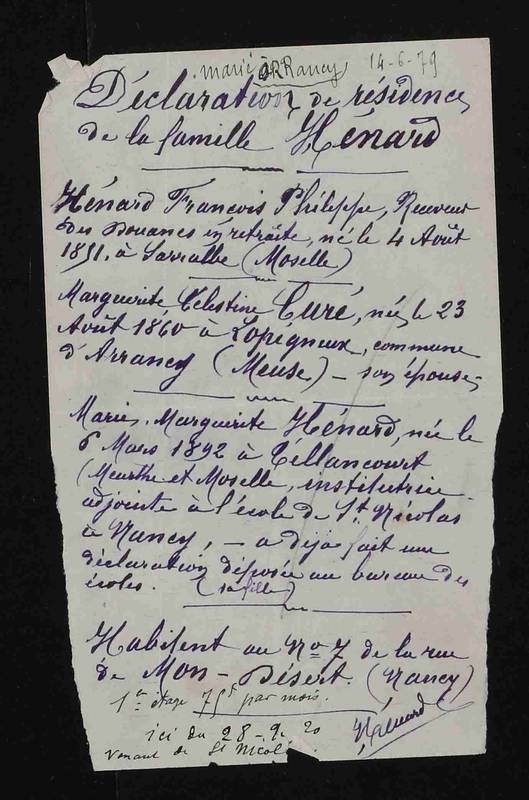 marié à Arrancy 14-6-79
Déclaration de résidence
de la famille Hénard
Hénard François Philippe, Receveur
des Douanes en retraite, né le 4 Août
1851, à Sarralbe (Moselle)
Marguerite Célestine Curé, née le 23
Août 1860 à Lopigneux, commune
d'Arrancy (Meuse) – son épouse,
Marie, Marguerite Hénard, née le
6 Mars 1892 à Tellancourt
(Meurthe et Moselle, institutrice
adjointe à l'école de St. Nicolas
à Nancy, – a déjà fait une
déclaration déposée au bureau des
écoles. (sa fille)
Habitent au No 7 de la rue
de Mon-Désert. (Nancy)
1er étage 75f par mois.
Hénard
ici du 28-9-20
venant de St Nicolas